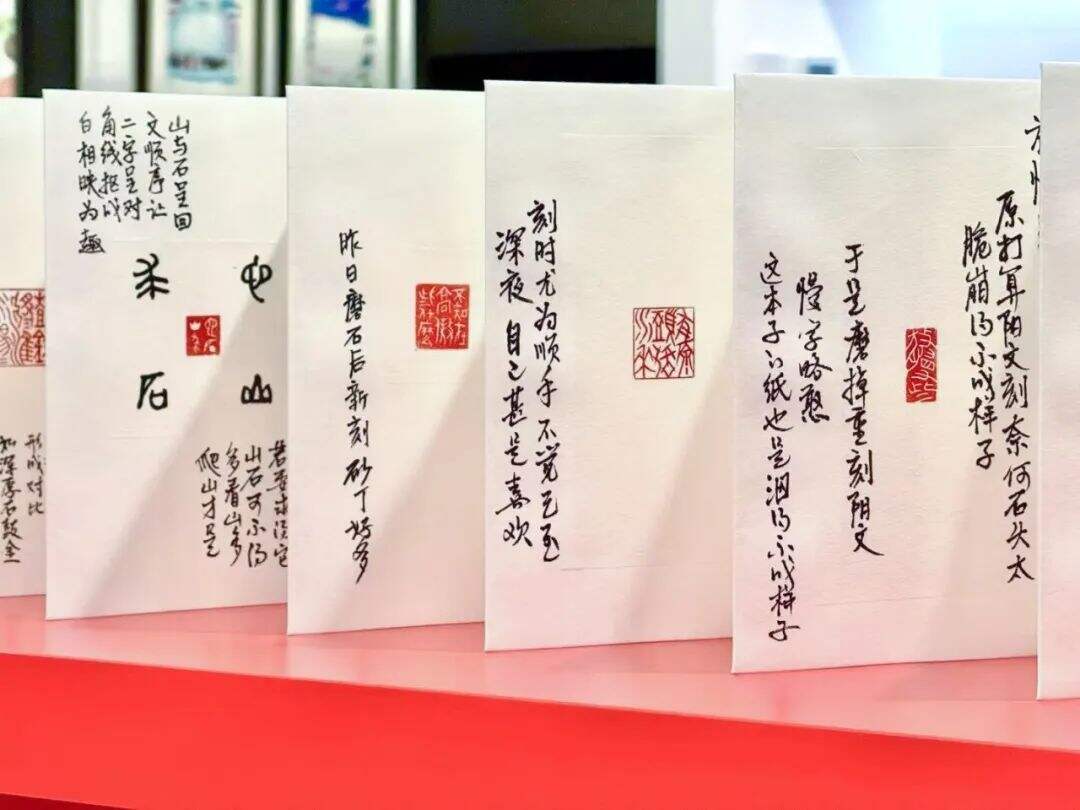 原打算阳文刻奈何石头太
脆崩得不成样子
于是磨掉重刻阳文
慢字略憨
这本子的纸也是洇得不成样子
刻时尤为顺手 不觉已至
深夜 自己甚是喜欢
昨日磨石后新刻 砂丁好多
山与石呈回
文顺序让
二字呈对
角线抠成
白相映为
趣
山
石
山石可不得
多看山多
爬山才是
形成对比